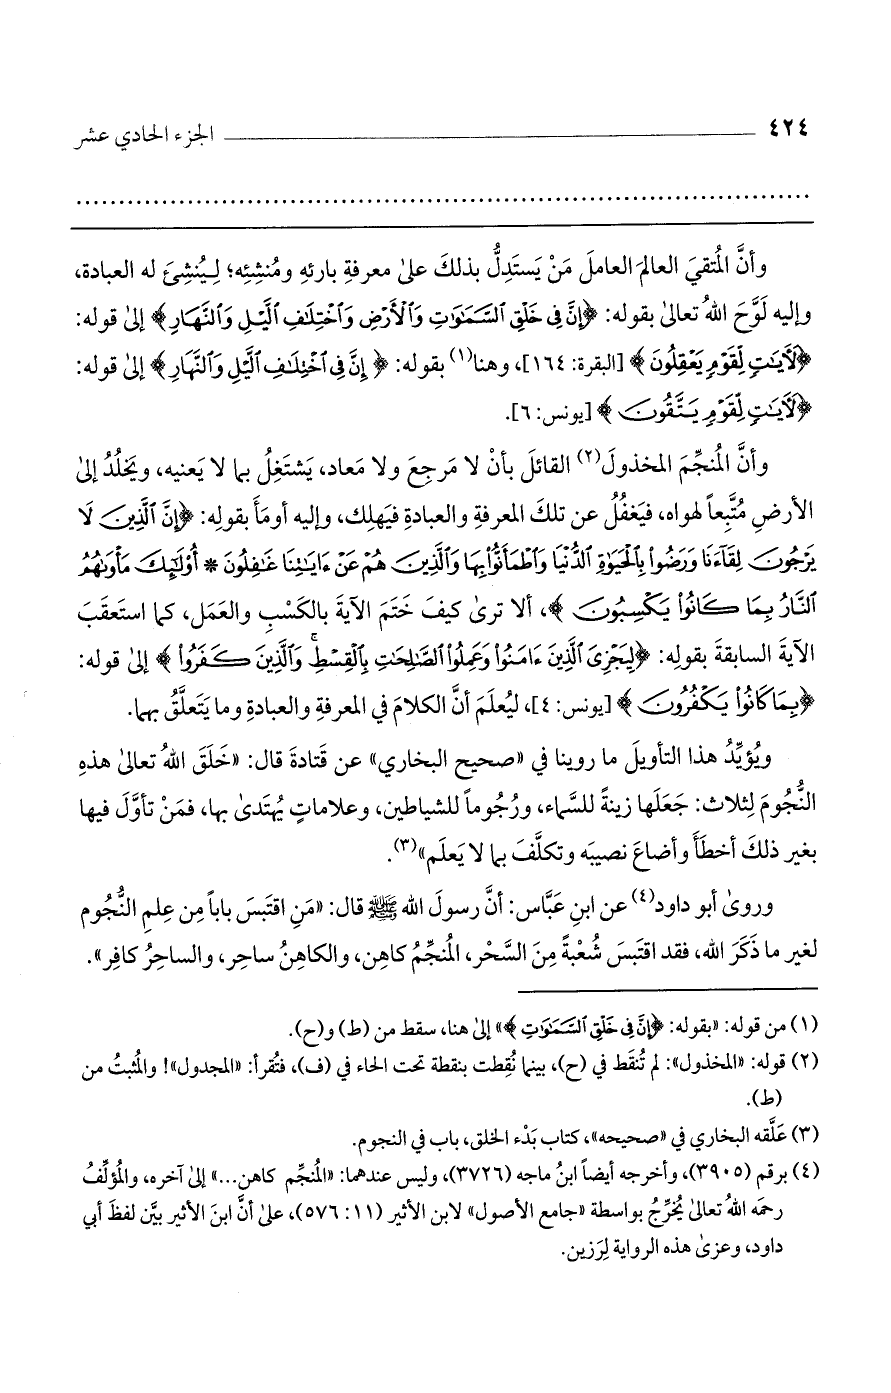 ٤٢٤ الجزء الحادي عشر
وأنَّ المُتقيَ العالمَ العاملَ مَنْ يَستَدِلُّ بذلكَ علىٰ معرفةِ بارئهِ ومُنشِئِه؛ لِـيُنشِئَ له العبادة،
وإليه لَوَّحَ اللهُ تعالىٰ بقوله: ﴿إِنَّ فِي خَلْقِ ٱلسَّمَٰوَٰتِ وَٱلْأَرْضِ وَٱخْتِلَٰفِ ٱلَّيْلِ وَٱلنَّهَارِ﴾ إلىٰ قوله:
﴿لَأٓيَٰتٍ لِّقَوْمٍ يَعْقِلُونَ﴾ [البقرة: ١٦٤]، وهنا(١) بقوله: ﴿إِنَّ فِي ٱخْتِلَٰفِ ٱلَّيْلِ وَٱلنَّهَارِ﴾ إلىٰ قوله:
﴿لَأٓيَٰتٍ لِّقَوْمٍ يَتَّقُونَ﴾ [يونس: ٦].
وأنَّ المُنجِّمَ المخذولَ(٢) القائلَ بأنْ لا مَرجِعَ ولا مَعاد، يَشتَغِلُ بما لا يَعنيه، ويَخلُدُ إلىٰ
الأرضِ مُتَّبِعاً لهواه، فيَغفُلُ عن تلكَ المعرفةِ والعبادةِ فيَهلِك، وإليه أومَأَ بقولِه: ﴿إِنَّ ٱلَّذِينَ لَا
يَرْجُونَ لِقَآءَنَا وَرَضُوا۟ بِٱلْحَيَوٰةِ ٱلدُّنْيَا وَٱطْمَأَنُّوا۟ بِهَا وَٱلَّذِينَ هُمْ عَنْ ءَايَٰتِنَا غَٰفِلُونَ * أُو۟لَٰٓئِكَ مَأْوَىٰهُمُ
ٱلنَّارُ بِمَا كَانُوا۟ يَكْسِبُونَ﴾، ألا ترىٰ كيفَ خَتَمَ الآيةَ بالكَسْبِ والعَمَل، كما استَعقَبَ
الآيةَ السابقةَ بقولِه: ﴿لِيَجْزِيَ ٱلَّذِينَ ءَامَنُوا۟ وَعَمِلُوا۟ ٱلصَّٰلِحَٰتِ بِٱلْقِسْطِ ۚ وَٱلَّذِينَ كَفَرُوا۟﴾ إلىٰ قوله:
﴿بِمَا كَانُوا۟ يَكْفُرُونَ﴾ [يونس: ٤]، ليُعلَمَ أنَّ الكلامَ في المعرفةِ والعبادةِ وما يَتَعلَّقُ بهما.
ويُؤيِّدُ هذا التأويلَ ما روينا في «صحيح البخاري» عن قَتادةَ قال: «خَلَقَ اللهُ تعالىٰ هذهِ
النُّجُومَ لِثلاث: جَعَلَها زينةً للسَّماء، ورُجُوماً للشياطين، وعلاماتٍ يُهتَدىٰ بها، فمَنْ تأوَّلَ فيها
بغير ذلكَ أخطَأَ وأضاعَ نصيبَه وتكلَّفَ بما لا يَعلَم»(٣).
وروىٰ أبو داود(٤) عن ابنِ عَبَّاس: أنَّ رسولَ الله ﷺ قال: «مَنِ اقتَبَسَ باباً مِن عِلمِ النُّجُوم
لغير ما ذَكَرَ الله، فقد اقتَبَسَ شُعْبةً مِنَ السَّحْر، المُنجِّمُ كاهِن، والكاهِنُ ساحِر، والساحِرُ كافِر».
(١) من قوله: «بقوله: ﴿إِنَّ فِي خَلْقِ ٱلسَّمَٰوَٰتِ﴾» إلىٰ هنا، سقط من (ط) و(ح).
(٢) قوله: «المخذول»: لم تُنقَط في (ح)، بينما نُقِطت بنقطة تحت الحاء في (ف)، فتُقرأ: «المجدول»! والمُثبتُ من
(ط).
(٣) عَلَّقه البخاري في «صحيحه»، كتاب بَدْء الخلق، باب في النجوم.
(٤) برقم (٣٩٠٥)، وأخرجه أيضاً ابنُ ماجه (٣٧٢٦)، وليس عندهما: «المُنجِّم كاهن...» إلىٰ آخره، والمُؤلِّفُ
رحمَه اللهُ تعالىٰ يُخَرِّجُ بواسطة «جامع الأصول» لابن الأثير (١١: ٥٧٦)، علىٰ أنَّ ابنَ الأثير بيَّن لفظَ أبي
داود، وعزىٰ هذه الرواية لِرَزين.